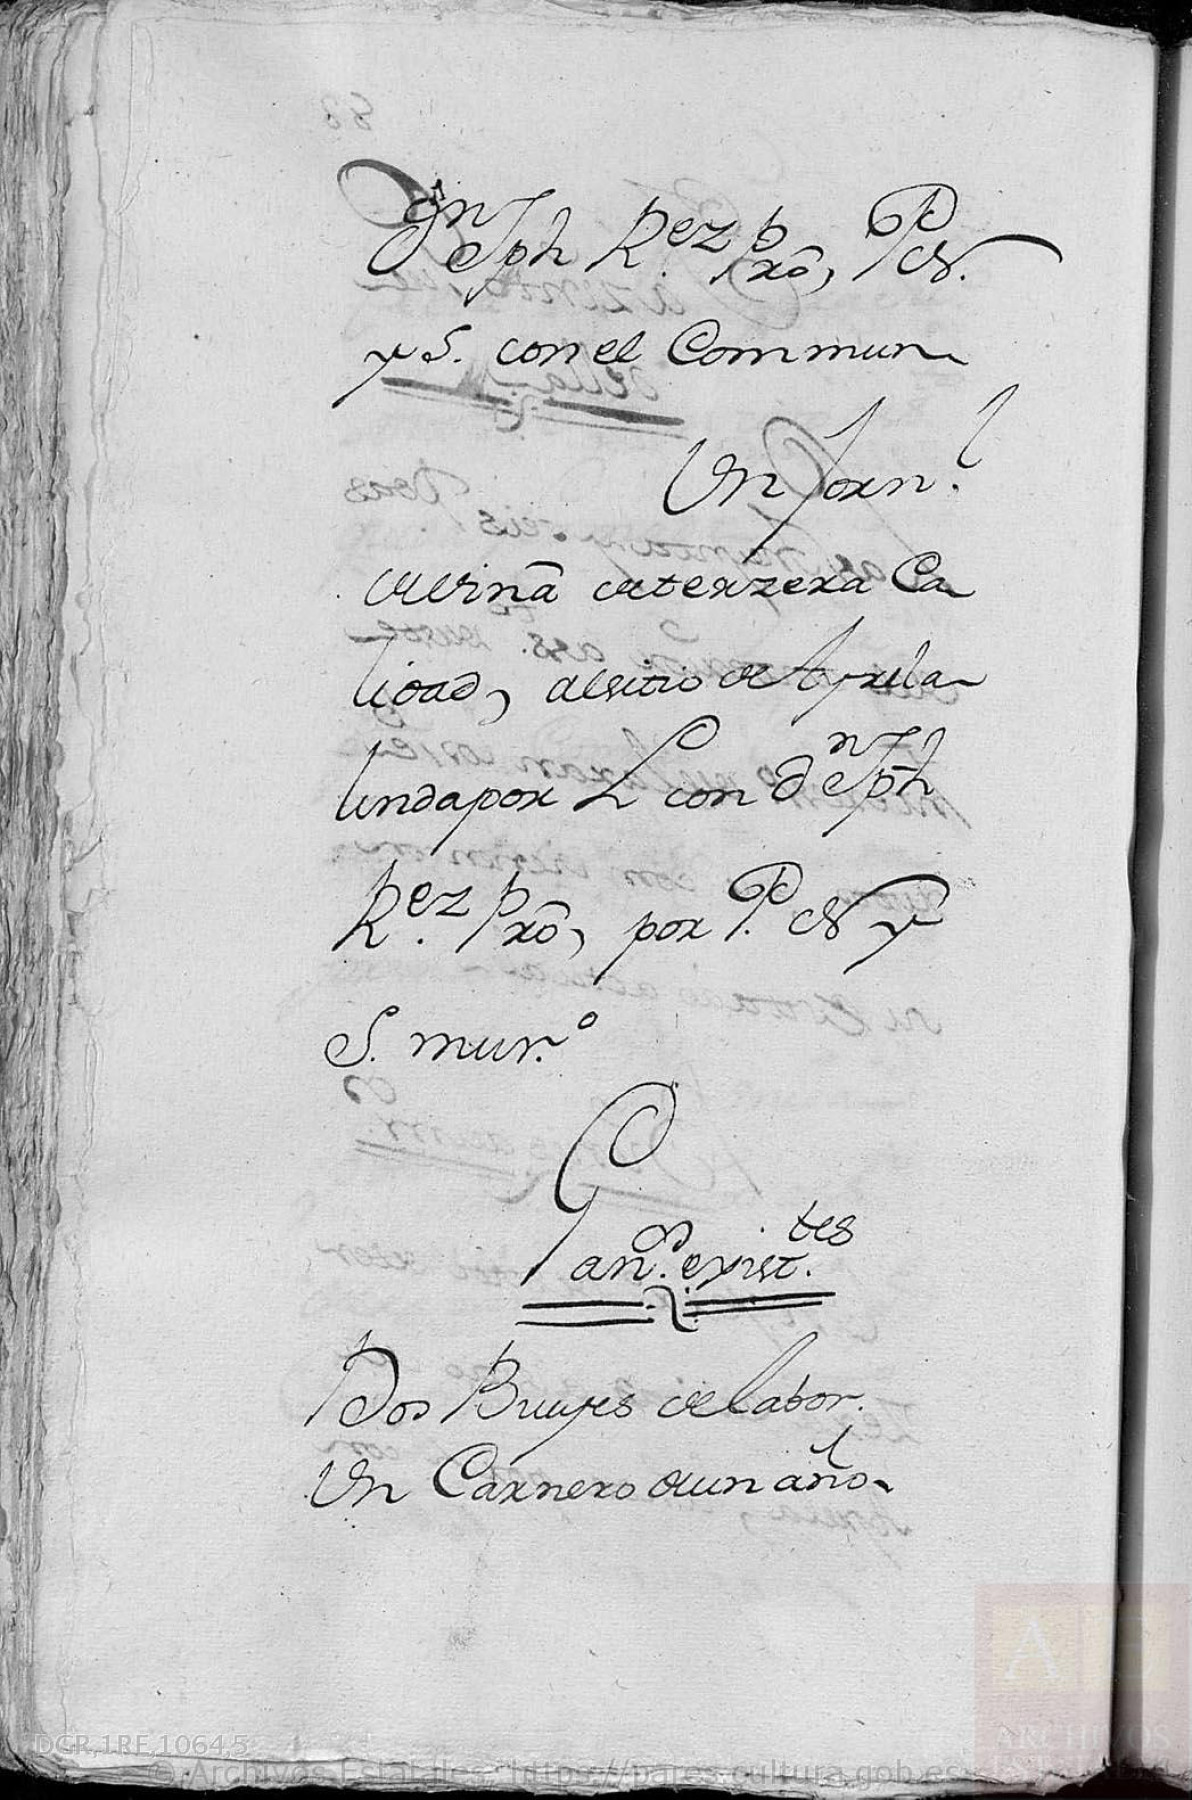 Dn Jph Rez Pro, P. N.
y S. con el Commun
Un Jorn.l
de viña de terzera Ca
lidad, al sitio de
linda por L con dn Jph
Rez Pro, por P. N y
S. mur.o
Gan.o exist.tes
Dos Bueyes de labor.
Un Carnero de un año.
DGR,1RE,1064,5
© Archivos Estatales, https://pares.cultura.gob.es
AE
ARCHIVOS
ESTATALES